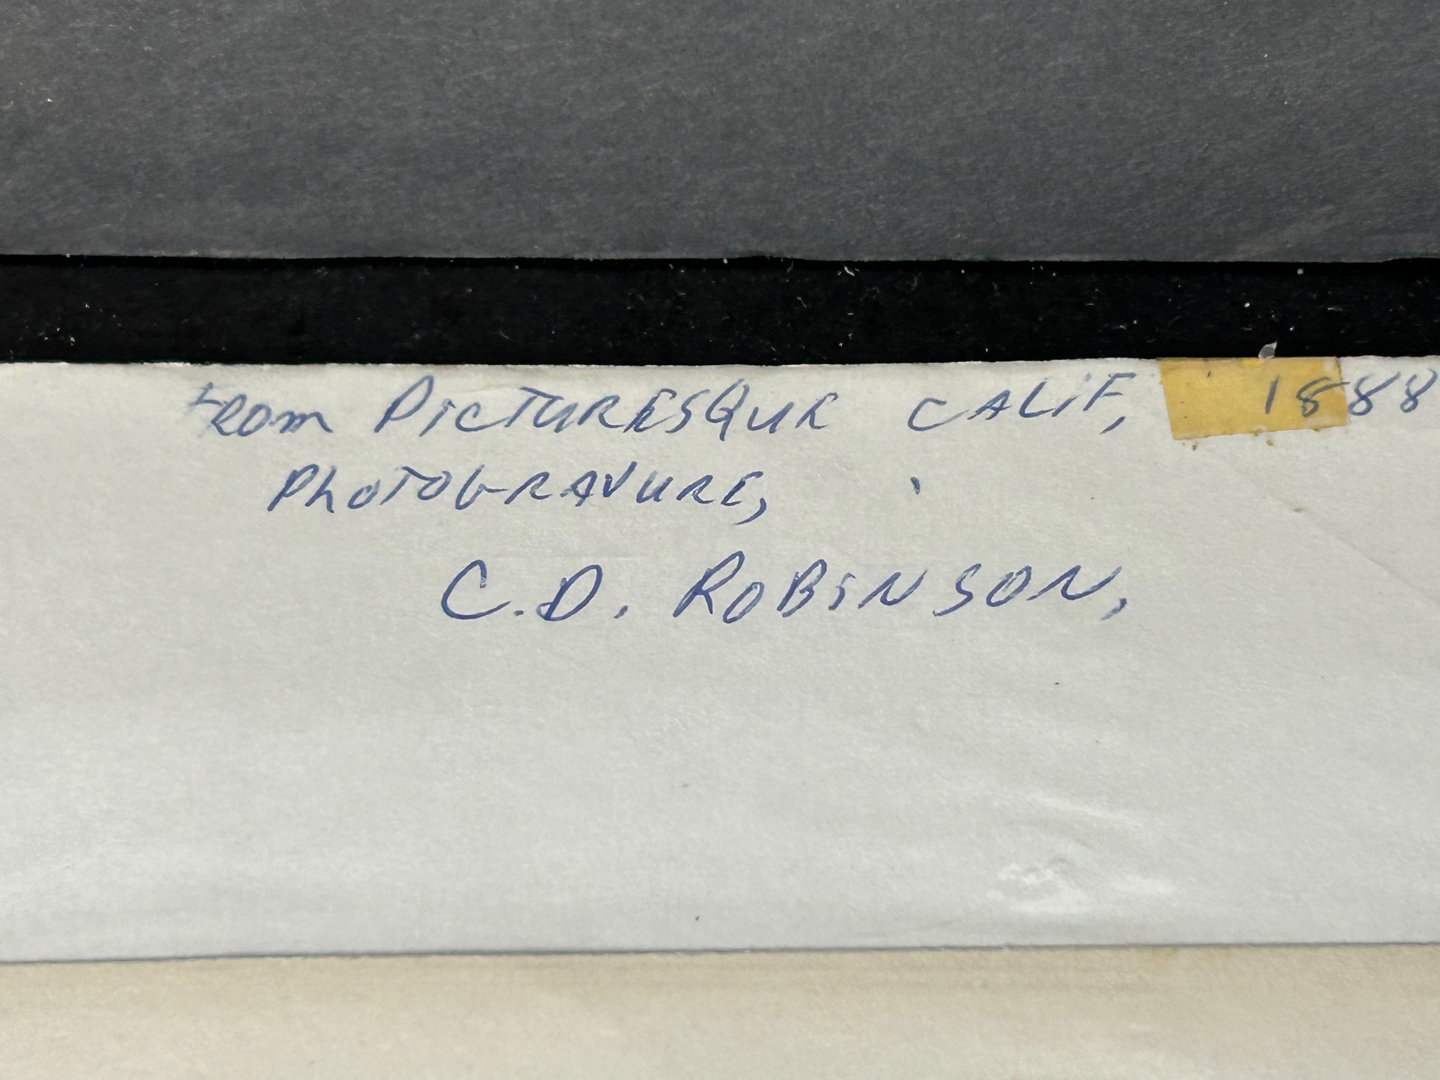 From PICTURESQUE CALIF, 1888
PhOTOGRAVURE,
C.D. ROBINSON,